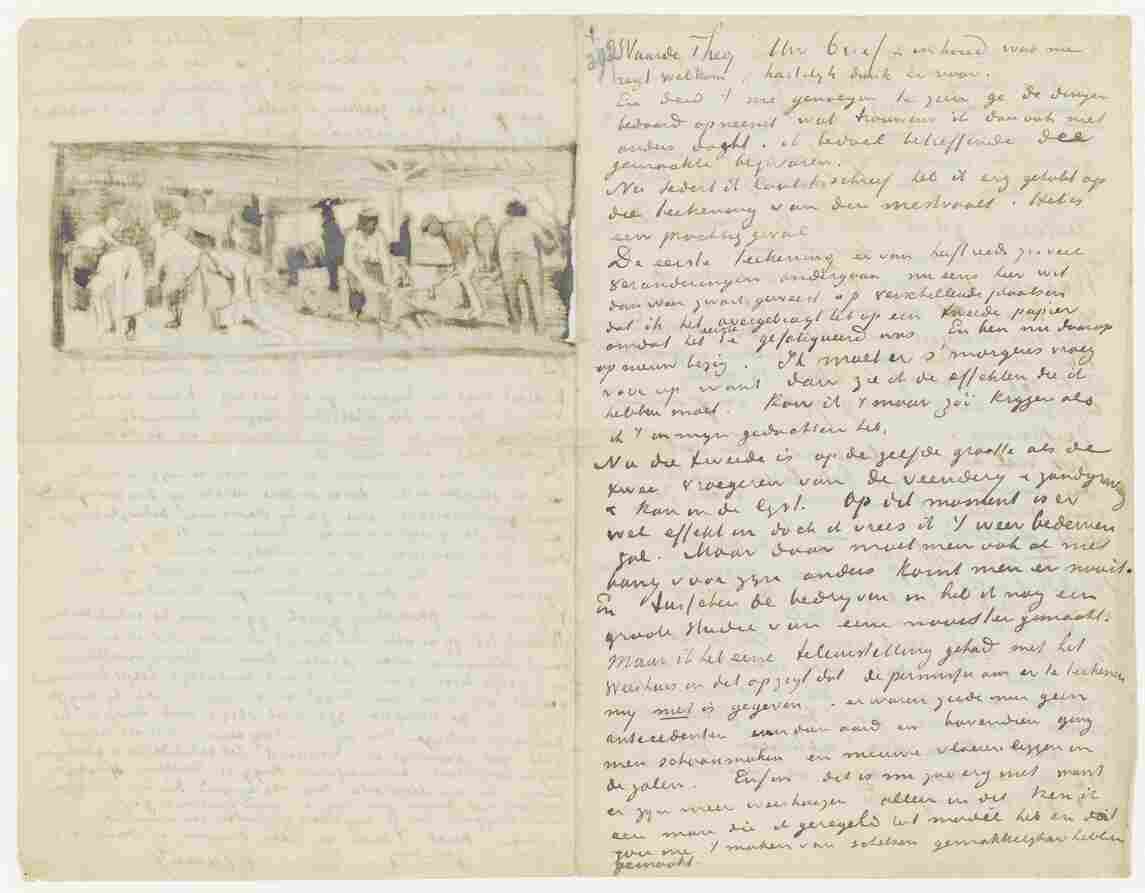 Waarde Theo, Uw brief & inhoud was me
regt welkom, hartelijk dank er voor.
En deed 't me genoegen te zien ge de dingen
bedaard opneemt wat trouwens ik dan ook niet
anders dacht. ik bedoel betreffende dee
gemaakte bezwaren.
Nu sedert ik laatst schreef heb ik erg getobt op
die teekening van den mestvaalt. Het is
een prachtig geval
De eerste teekening er van heeft reeds zooveel
veranderingen ondergaan nu eens hier wit
dan weer zwart geweest op verschillende plaatsen
dat ik het overgebragt heb op een tweede papier
omdat het eerste te gefatigueerd was. En ben nu daarop
op nieuw bezig. Ik moet er s'morgens vroeg
voor op want dan zie ik de effekten die ik
hebben moet. Kon ik 't maar zóó krijgen als
ik 't in mijn gedachten heb.
Nu die tweede is op de zelfde grootte als de
twee vroegeren van de veenderij & zandgraverij
& kan in de lijst. Op dit moment is er
wel effekt in doch ik vrees ik 't weer bederven
zal. Maar daar moet men ook al niet
bang voor zijn anders komt men er nooit.
En tusschen de bedrijven in heb ik nog een
groote studie van eene naaister gemaakt.
Maar ik heb eene teleurstelling gehad met het
Weeshuis in dit opzigt dat de permissie om er te teekenen
mij niet is gegeven. er waren zeide men geen
antecedenten van dien aard en bovendien ging
men schoonmaken en nieuwe vloeren leggen in
de zalen. Enfin dit is nu zoo erg niet want
er zijn meer weeshuizen alleen in dit ken ik
een man die ik geregeld tot model heb en dat
zou me 't maken van schetsen gemakkelijker hebben
gemaakt.